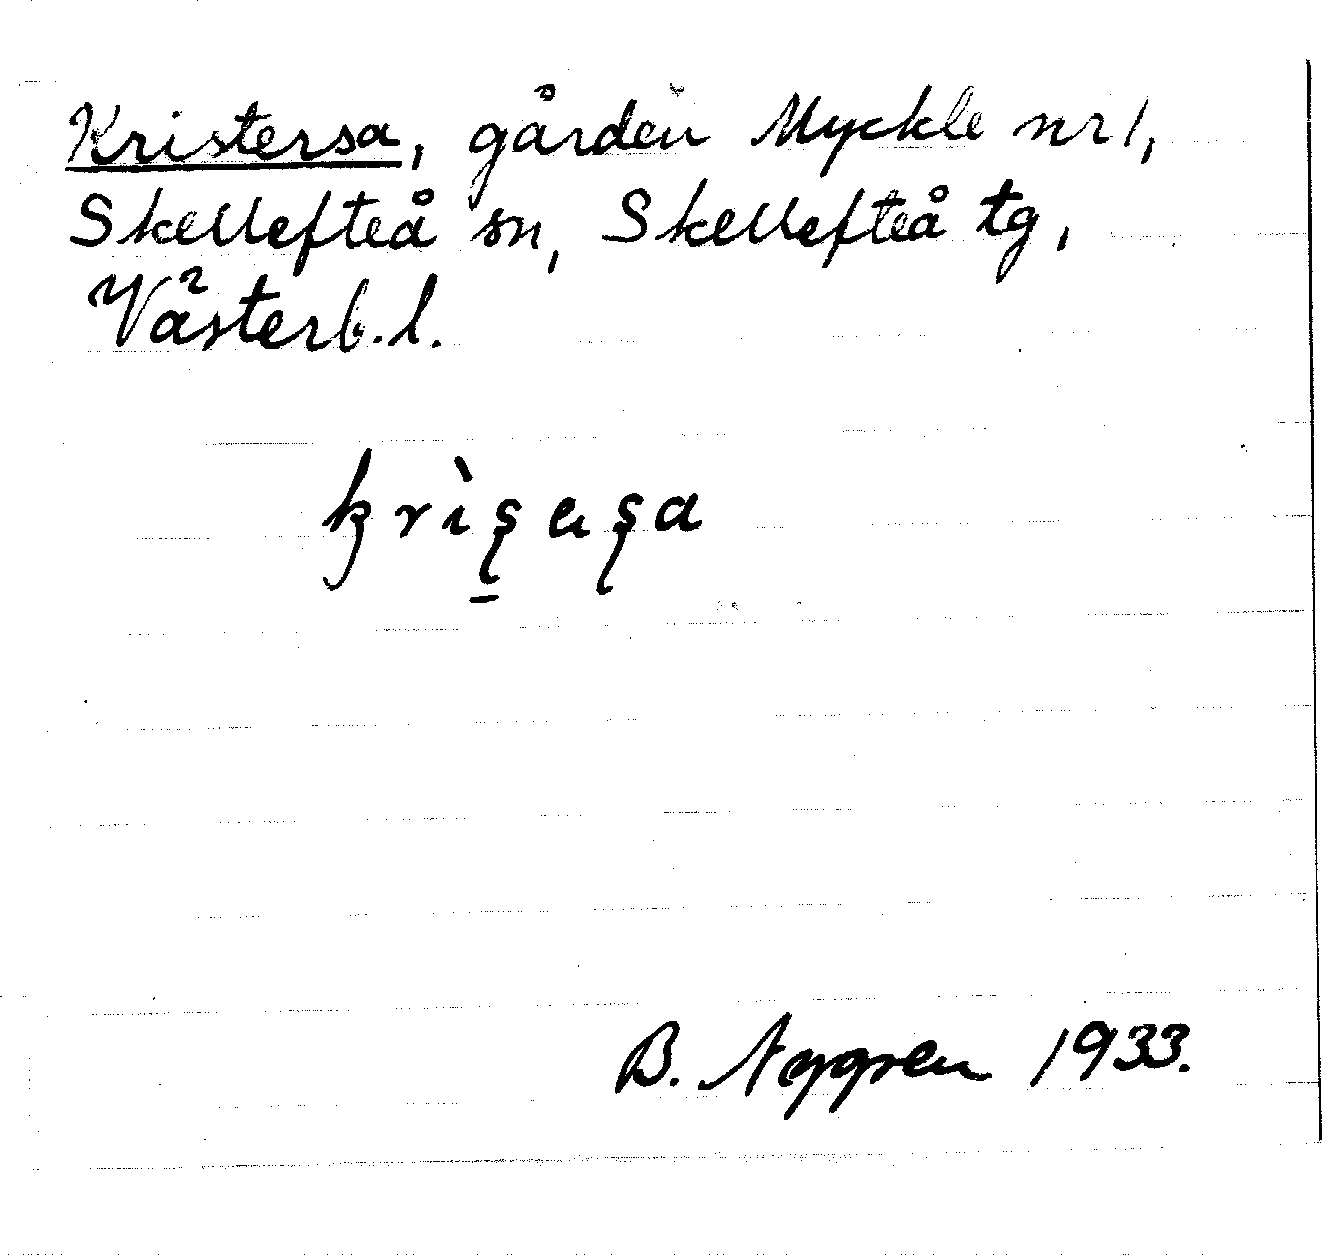 Kristersa, gården Myckle nr 1,
Skellefteå sn, Skellefteå tg,
Västerb.l.
B. Nggren 1933.